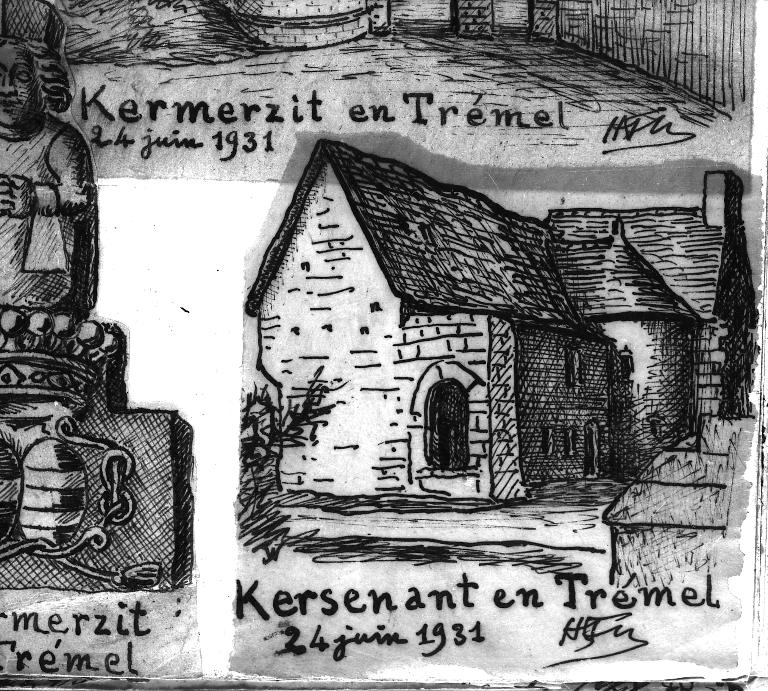 Kermerzit en Trémel
24 juin 1931
Kersenant en Trémel
24 juin 1931
rmerzit :
Trémel